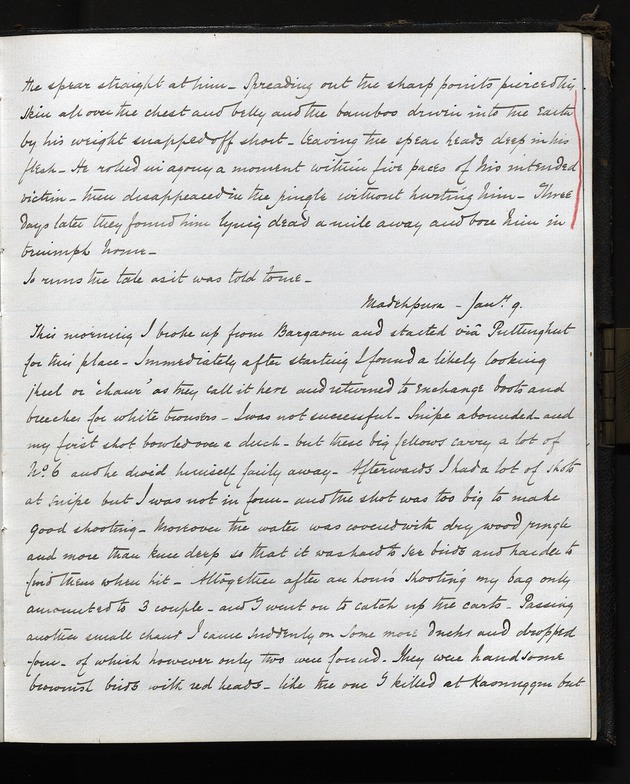 the spear straight at him - Spreading out the sharp points pierced his
skin all over the chest and belly and the bamboo driven into the Earth
by his weight snapped off short - leaving the spear heads deep in his
flesh - He rolled in agony a moment within five paces of his intended
victim - then disappeared in the jungle without hurting him - Three
days later they found him lying dead a mile away and bore him in
triumph home -
So runs the tale as it was told to me -
Madehpura - Jany. 9.
This morning I broke up from Bargaon and started viâ Puttenghut
for this place - Immediately after starting I found a likely looking
jheel or 'chaur' as they call it here and returned to exchange boots and
breeches for white trousers - I was not successful - Snipe abounded and
my first shot bowled over a duck - but these big fellows carry a lot of
No. 6 and he div'd himself fairly away - Afterwards I had a lot of shots
at snipe but I was not in form - and the shot was too big to make
good shooting - Moreover the water was covered with dry wood jungle
and more than knee deep so that it was hard to see birds and harder to
find them when hit - Altogether after an hour's shooting my bag only
amounted to 3 couple - and I went on to catch up the carts - Passing
another small chaur I came suddenly on some more ducks and dropped
four - of which however only two were found. They were handsome
brownish birds with red heads - like the one I killed at but